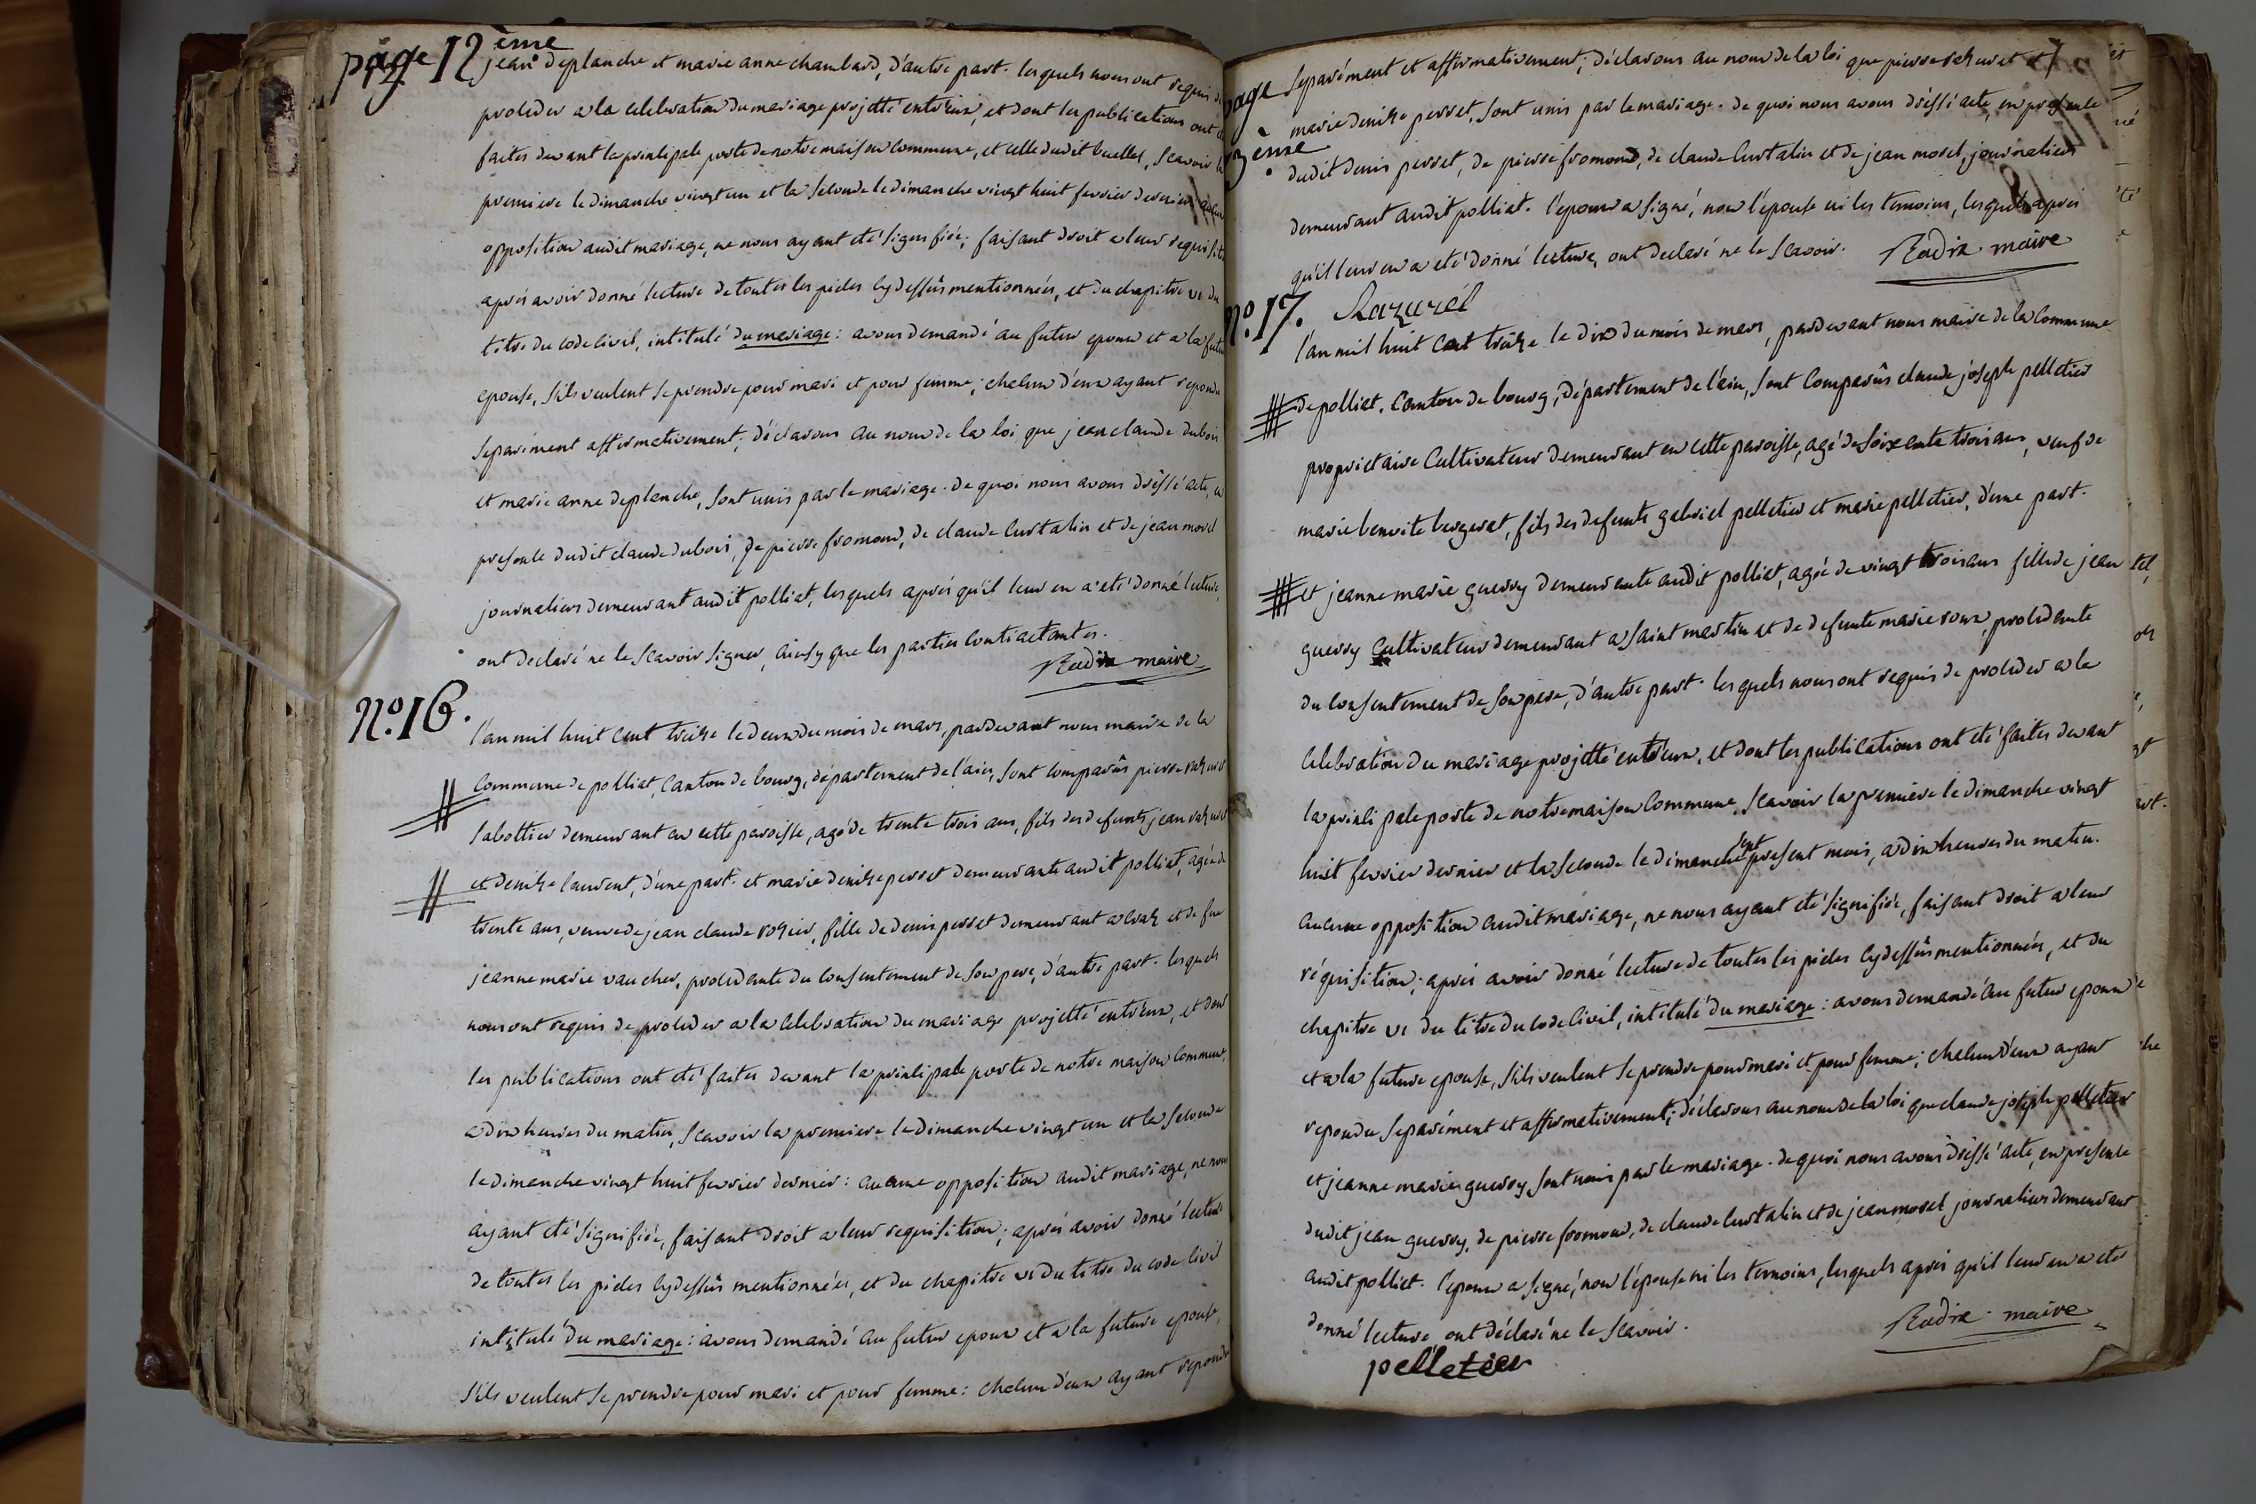 page 12 ème
jean deplanche et marie anne chambard, d'autre part. lesquels nous ont requis de
proceder a la celebration du mariage projetté entr'eux, et dont les publications ont
faites devant la principale porte de notre maison commune, et celle dudit buellet, scavoir la
premiere le dimanche vingt un et la seconde le dimanche vingt huit fevrier dernier
opposition audit mariage, ne nous ayant eté signifiée; faisant droit a leur requisit
aprés avoir donné lecture de toutes les pieces cydessûs mentionnées, et du chapitre vi du
titre du code civil, intitulé du mariage: avons demandé au futur epoux et a la futu
epouse, s'ils veulent se prendre pour mari et pour femme; chacun d'eux ayant repondu
separément affirmativement; déclarons au nom de la loi, que jean claude dubois
et marie anne deplanche, sont unis par le mariage. de quoi nous avons drêssé acte, en
presence dudit claude dubois, de pierre fromond, de claude curtalin et de jean morel
journaliers demeurant audit polliat, lesquels aprés qu'il leur en a eté donné lecture,
ont declaré ne le scavoir signer, ainsy que les parties contractantes.
Radix maire
N.o 16.
l'an mil huit cent treize le deux du mois de mars, pardevant nous maire de la
commune de polliat, canton de bourg, département de l'ain, sont comparûs pierre
sabottier demeurant en cette paroisse, agé de trente trois ans, fils des defunts jean
et denize laurent, d'une part. et marie denize perret demeurante audit polliat, agée de
trente ans, veuve de jean claude rozier, fille de denis perret demeurant a cras et de fue
jeanne marie vaucher, procedante du consentement de son pere, d'autre part. lesquels
nous ont requis de proceder a la celebration du mariage projetté entr'eux, et dont
les publications ont eté faites devant la principale porte de notre maison commune,
a dix heures du matin, scavoir la premiere le dimanche vingt un et la seconde
le dimanche vingt huit fevrier dernier: aucune opposition audit mariage, ne nous
ayant eté signifiée, faisant droit a leur requisition; aprés avoir donné lecture
de toutes les pieces cydessûs mentionnées, et du chapitre vi du titre du code civil
intitulé du mariage: avons demandé au futur epoux et a la future epouse,
s'ils veulent se prendre pour mari et pour femme: chacun d'eux ayant repondu
page 3 ème
separément et affirmativement; déclarons au nom de la loi que pierre et
marie denize perret, sont unis par le mariage. de quoi nous avons drêssé acte, en presence
dudit denis perret, de pierre fromond, de claude curtalin et de jean morel, journaliers
demeurant audit polliat. l'epoux a signé, non l'épouse ni les temoins, lesquels aprés
qu'il leur en a eté donné lecture, ont declaré ne le scavoir.
Radix maire
N.o 17.
l'an mil huit cent treize le dix du mois de mars, pardevant nous maire de la commune
de polliat. canton de bourg, département de l'ain, sont comparûs claude joseph pelletier
proprietaire cultivateur demeurant en cette paroisse, agé de soixante trois ans, veuf de
marie benoite bergerat, fils des defunts gabriel pelletier et marie pelletier, d'une part.
et jeanne marie guerry demeurante audit polliat, agée de vingt trois ans fille de jean
guerry cultivateur demeurant a saint martin et de defunte marie roux, procedante
du consentement de son pere, d'autre part. lesquels nous ont requis de proceder a la
celebration du mariage projetté entr'eux, et dont les publications ont eté faites devant
la principale porte de notre maison commune, scavoir la premiere le dimanche vingt
huit fevrier dernier et la seconde le dimanche sept present mois, a dix heures du matin.
aucune opposition audit mariage, ne nous ayant eté signifiée, faisant droit a leur
réquisition; aprés avoir donné lecture de toutes les pieces cydessûs mentionnées, et du
chapitre vi du titre du code civil, intitulé du mariage: avons demandé au futur epoux
et a la future epouse, s'ils veulent se prendre pour mari et pour femme; chacun d'eux ayant
repondu separément et affirmativement; déclarons au nom de la loi que claude joseph pelletier
et jeanne marie guerry sont unis par le mariage. de quoi nous avons drêssé acte, en presence
dudit jean guerry, de pierre fromond, de claude curtalin et de jean morel journaliers demeurant
audit polliat. l'epoux a signé, non l'épouse ni les temoins, lesquels aprés qu'il leur en a eté
donné lecture, ont déclaré ne le scavoir.
Radix maire
pelletier